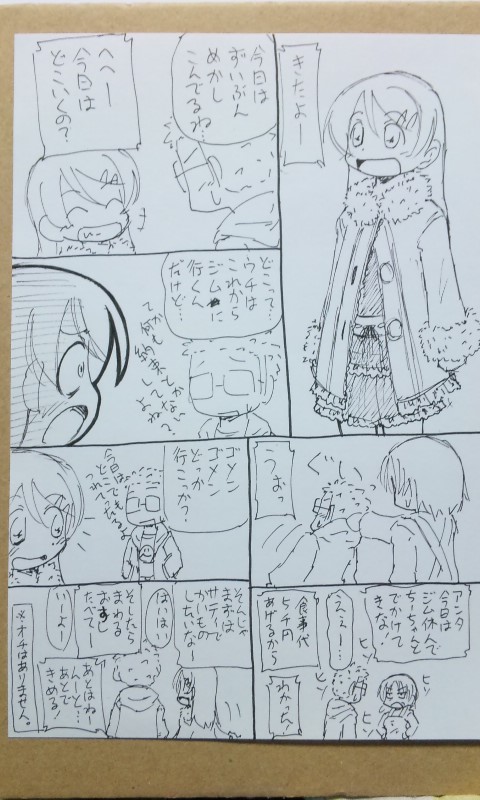 きたよー
今日は
ずいぶん
めかし
こんでるね…
へへー
今日は
どこいくの?
どこって…
ウチは
これから
ジムに
行くん
だけど…
てか
何も約束とか
してないよね?
うおっ
ぐいっ
ゴメン
ゴメン
どっか
行こっか?
今日は
どこでも
つれてったるよ
アンタ
今日は
ジム休んで
ちーちゃんと
でかけて
きな!
ええー…
食事代
5千円
あげるから
わかった!
ヒソ
ヒソ
ヒソ
そんじゃ
まずは
サティで
かいもの
したいなー
はいはい
そしたら
まわる
おすし
たべてー
いーよー
あとはねー
んーと…
あとで
きめる!
※オチはありません。